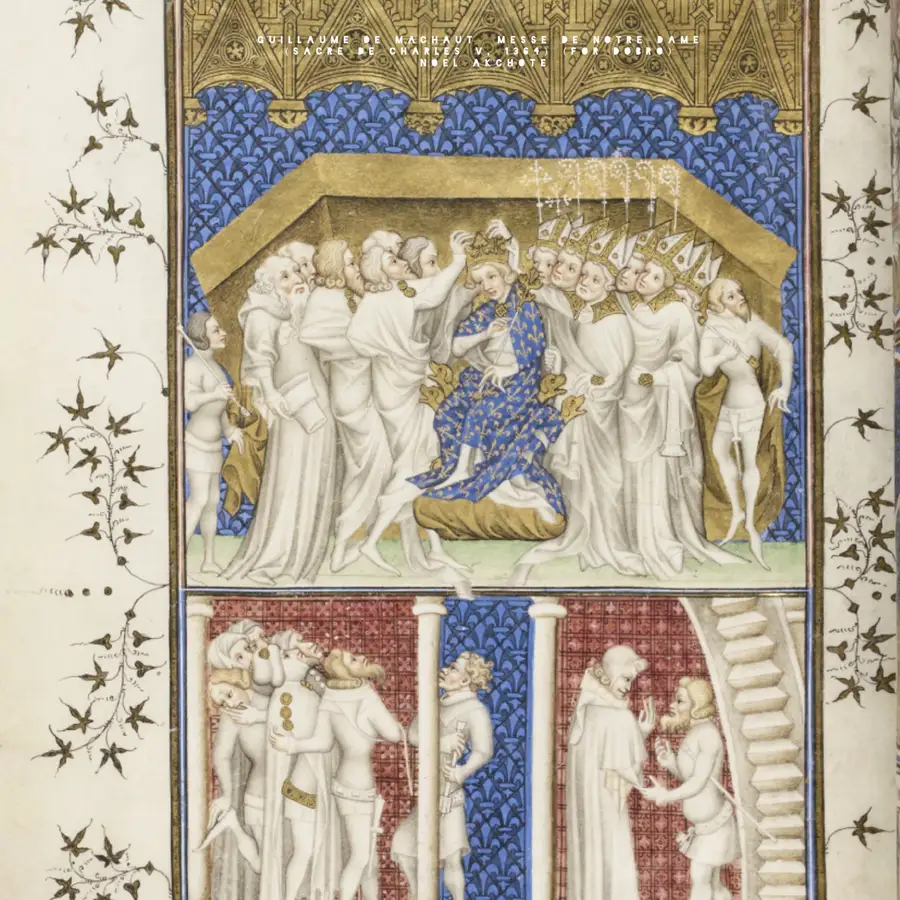 GUILLAUME DE MACHAUT, MESSE DE NOTRE DAME
(SACRE DE CHARLES V, 1364) (FOR DOBRO)
NOËL AKCHOTÉ